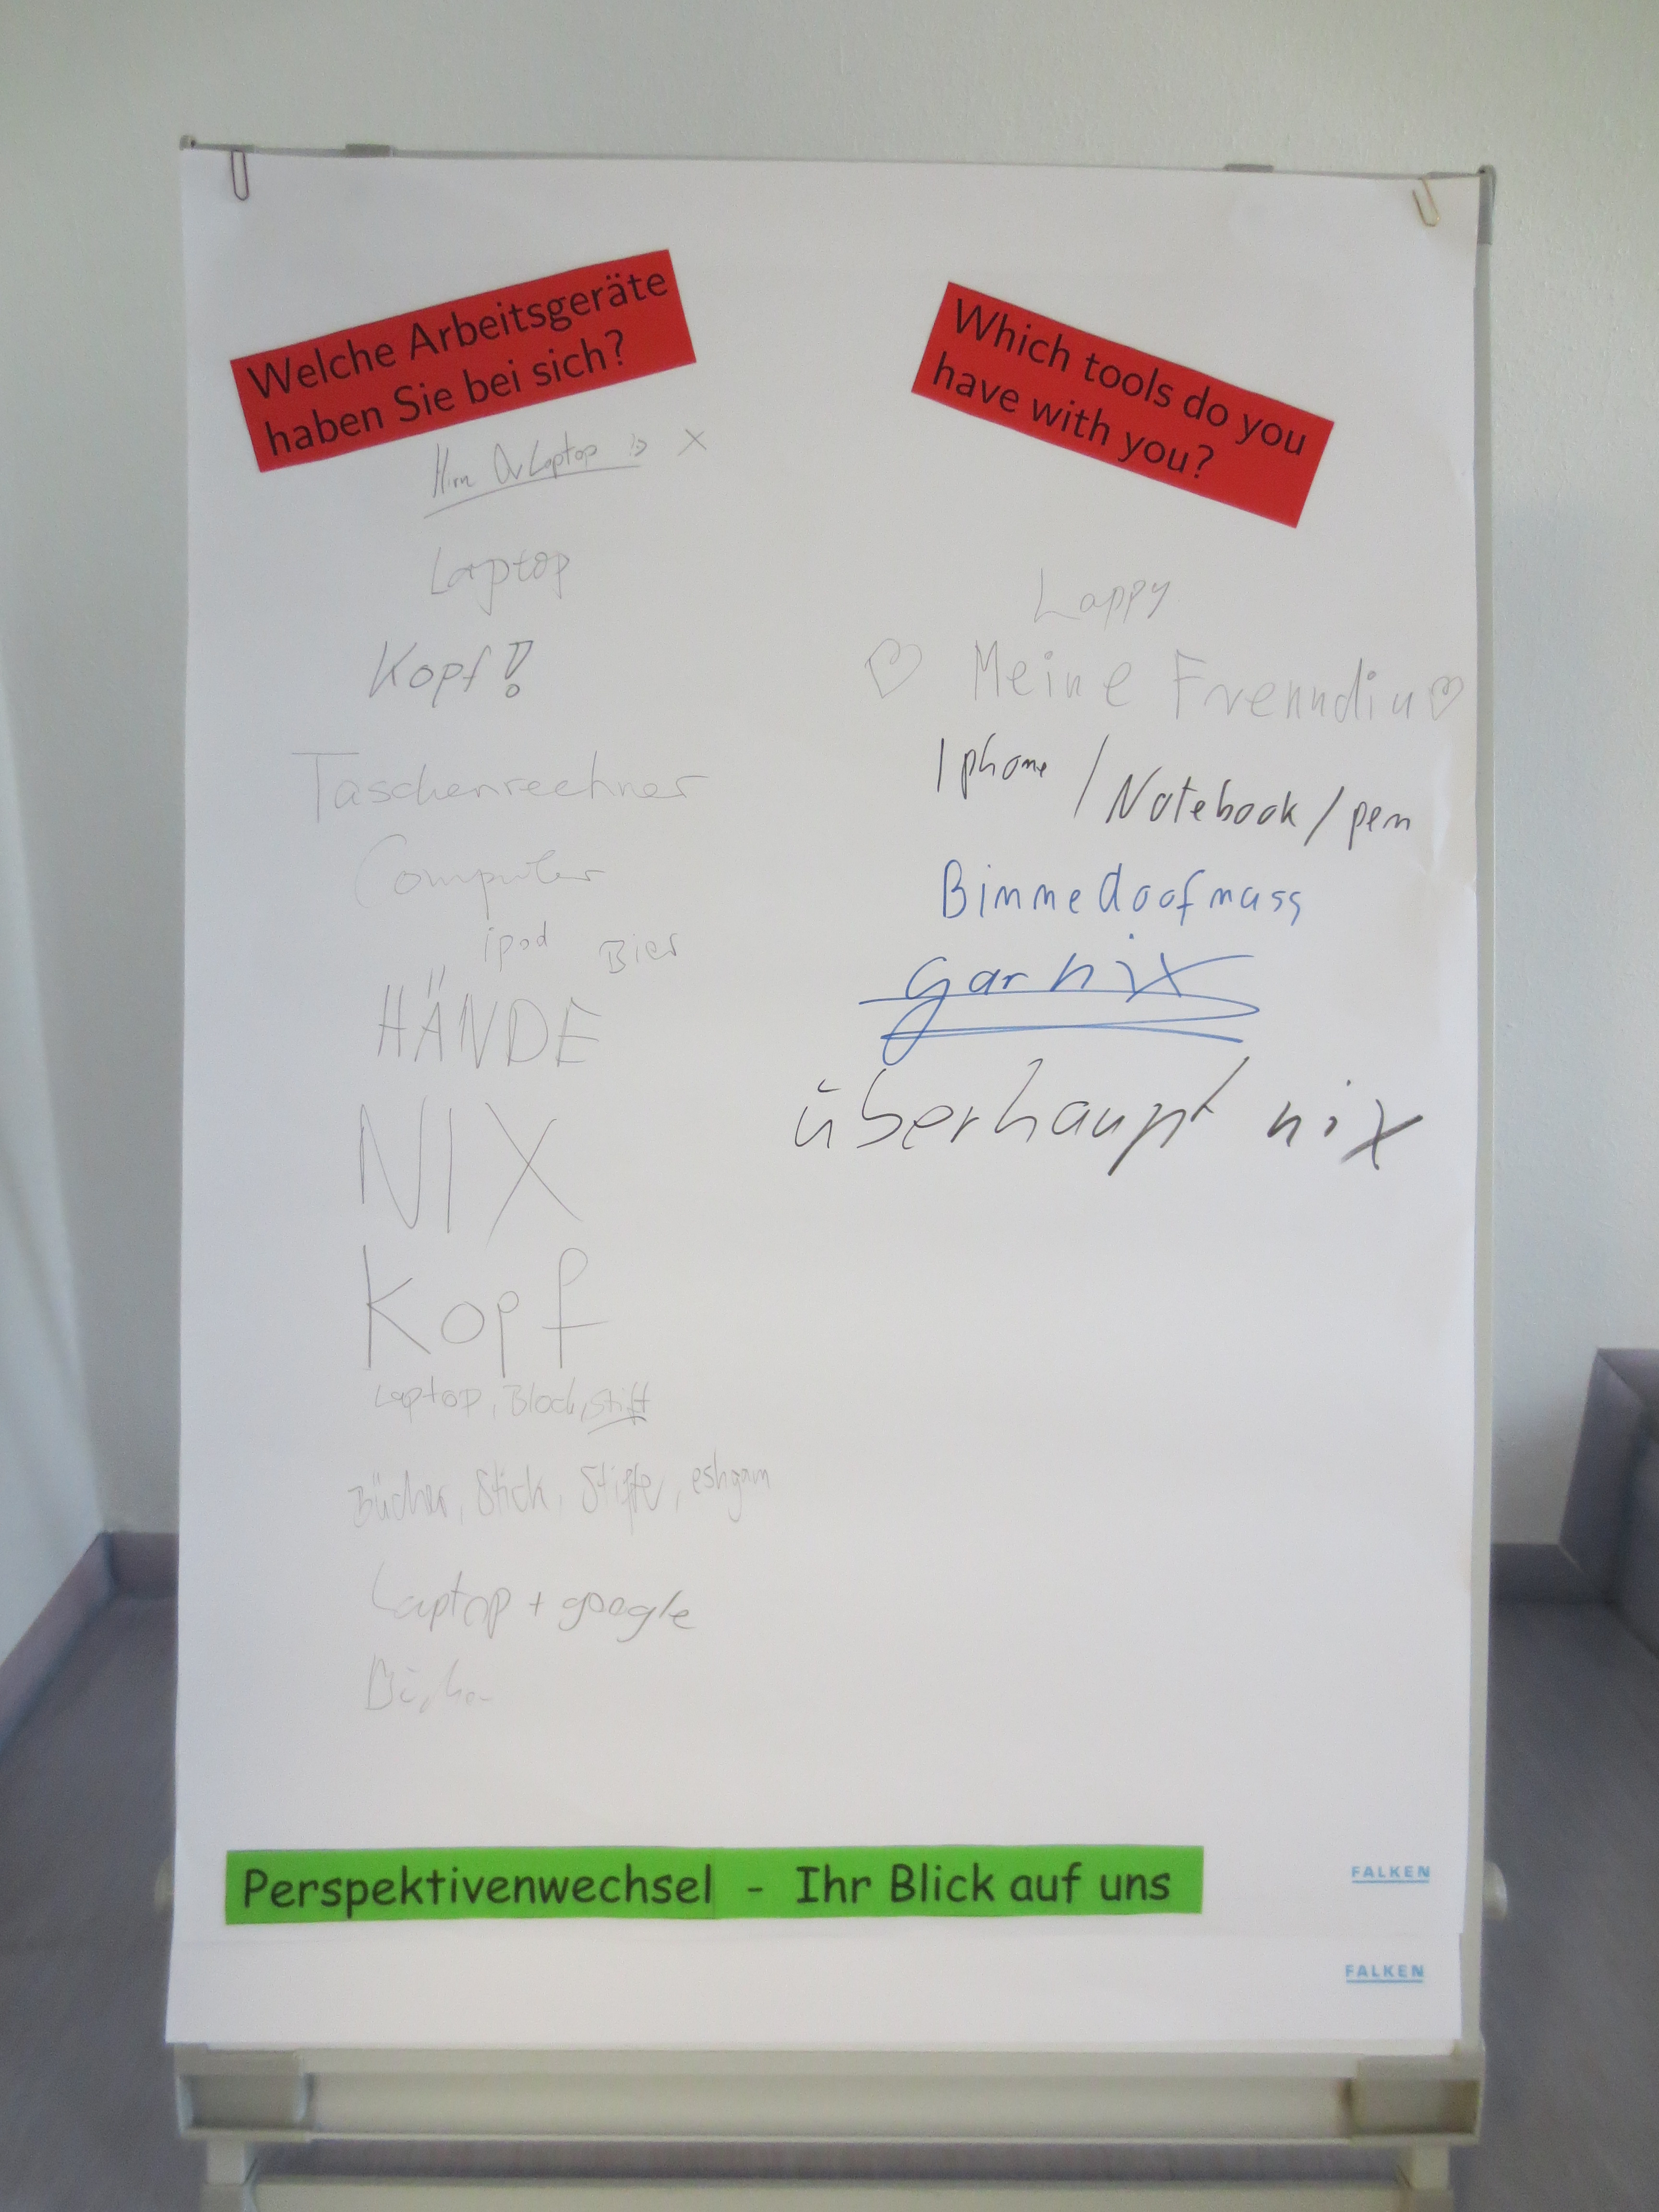 Welche Arbeitsgeräte
haben Sie bei sich?
Hirn Laptop X
Laptop
Kopf!
Taschenrechner
Computer
ipod Bier
HÄNDE
NIX
Kopf
Laptop, Block, Stift
Bücher, Stick, Stifte,
Laptop + google
Which tools do you
have with you?
Lappy
♡ Meine Freundin ♡
Iphone / Notebook / pen
Bimmedoofmuss
gar nix
überhaupt nix
Perspektivenwechsel - Ihr Blick auf uns
FALKEN
FALKEN